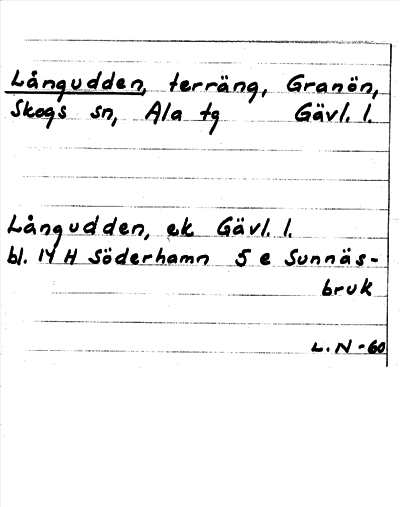 Långudden, terräng, Granön,
Skogs sn, Ala tg Gävl. l.
Långudden, ek Gävl. l.
bl. 14 H Söderhamn 5 e Sunnäs-
bruk
L. N -60